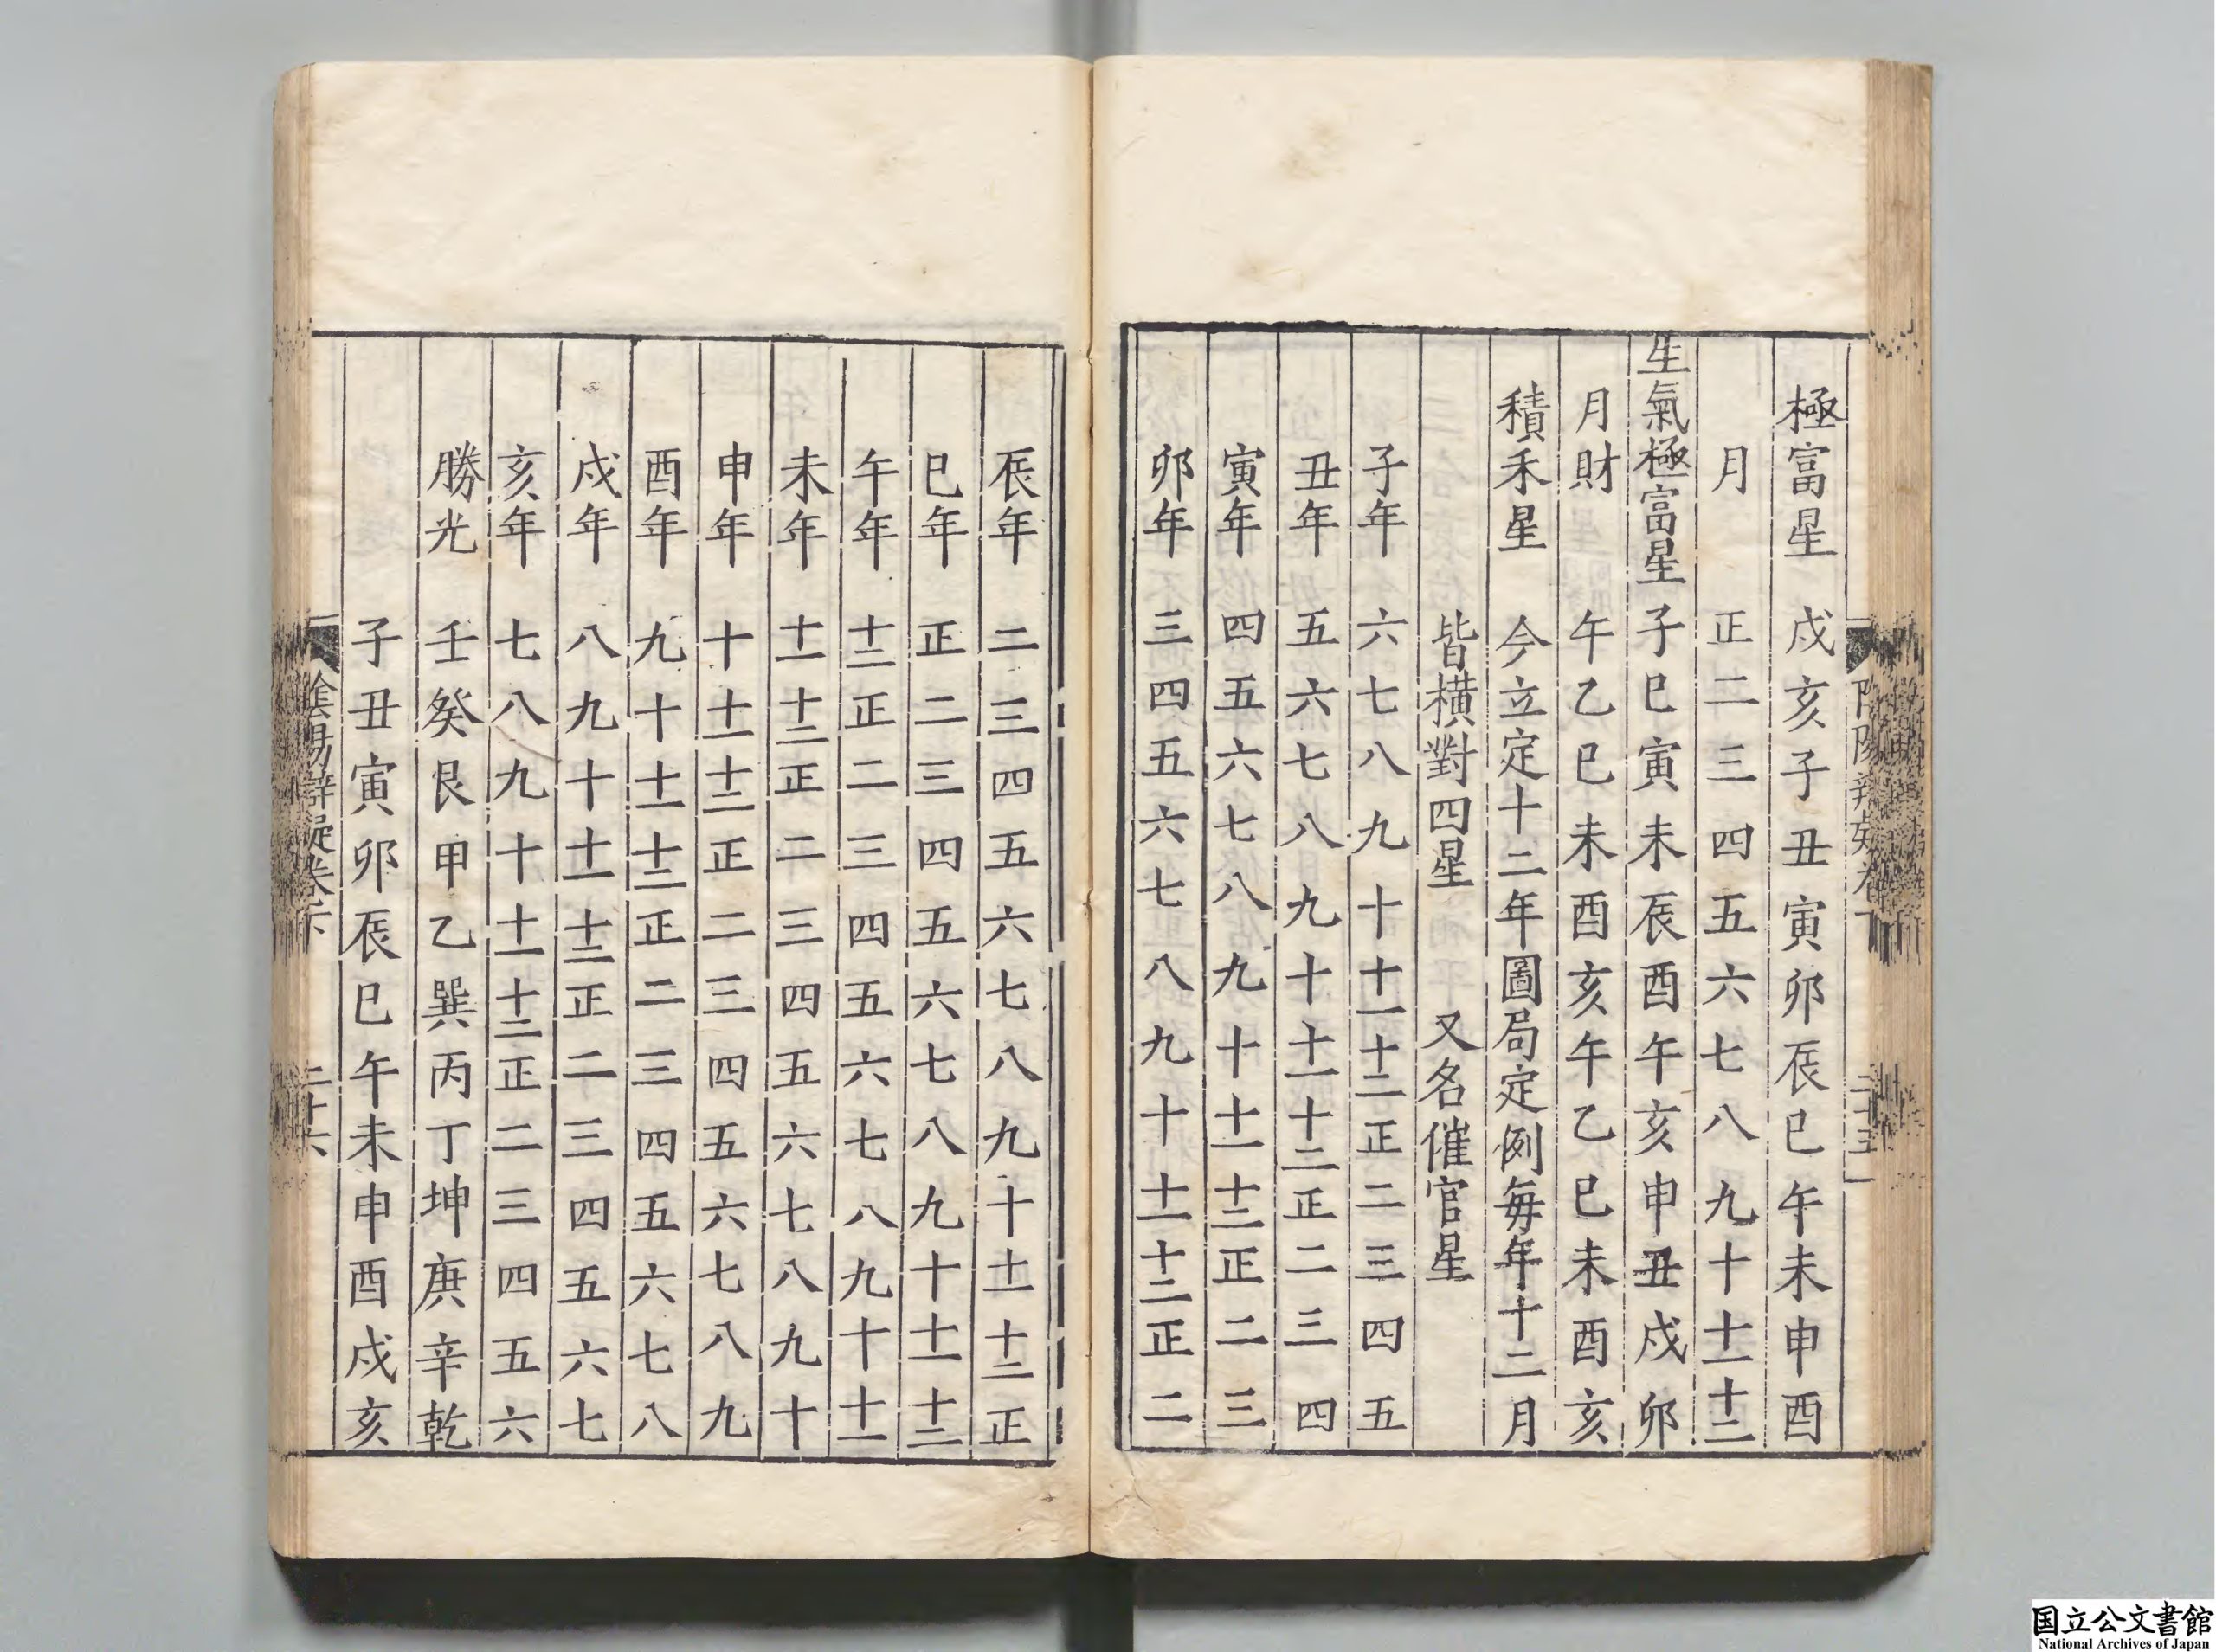 極富星 戌亥子丑寅卯辰巳午未申酉
月 正二三四五六七八九十十一十二
生氣極富星 子巳寅未辰酉午亥申丑戌卯
月財 午乙巳未酉亥午乙巳未酉亥
積禾星 今立定十二年圖局定例每年十二月
皆橫對四星 又名催官星
子年 六七八九十十一十二正二三四五
丑年 五六七八九十十一十二正二三四
寅年 四五六七八九十十一十二正二三
卯年 三四五六七八九十十一十二正二
辰年 二三四五六七八九十十一十二正
巳年 正二三四五六七八九十十一十二
午年 十二正二三四五六七八九十十一
未年 十一十二正二三四五六七八九十
申年 十十一十二正二三四五六七八九
酉年 九十十一十二正二三四五六七八
戌年 八九十十一十二正二三四五六七
亥年 七八九十十一十二正二三四五六
勝光 壬癸艮甲乙巽丙丁坤庚辛乾
子丑寅卯辰巳午未申酉戌亥
陰陽辯疑卷下 二十六
国立公文書館
National Archives of Japan